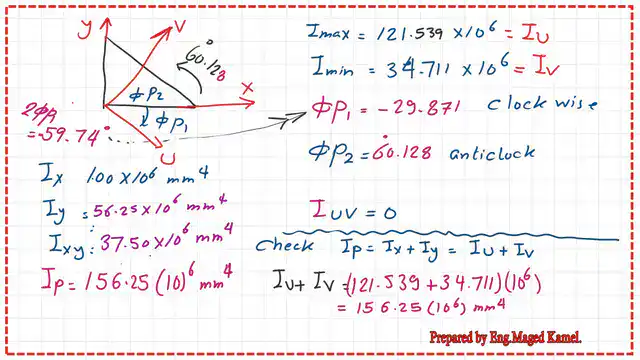 y
V
60.128°
X
ΦP2
ΦP1
2ΦP1
=-59.74°
U
Ix 1.00 x10^6 mm^4
Iy = 56.25 x10^6 mm^4
Ixy: 37.50 x10^6 mm^4
IP = 156.25 (10)^6 mm^4
Imax = 121.539 x10^6 = IU
Imin = 34.711 x10^6 = IV
ΦP1 = -29.871 clockwise
ΦP2 = 60.128° anticlock
IUV = 0
check IP = Ix + Iy = IU + IV
IU + IV = (121.539 + 34.711)(10^6)
= 156.25 (10^6) mm^4
Prepared by Eng.Maged Kamel.